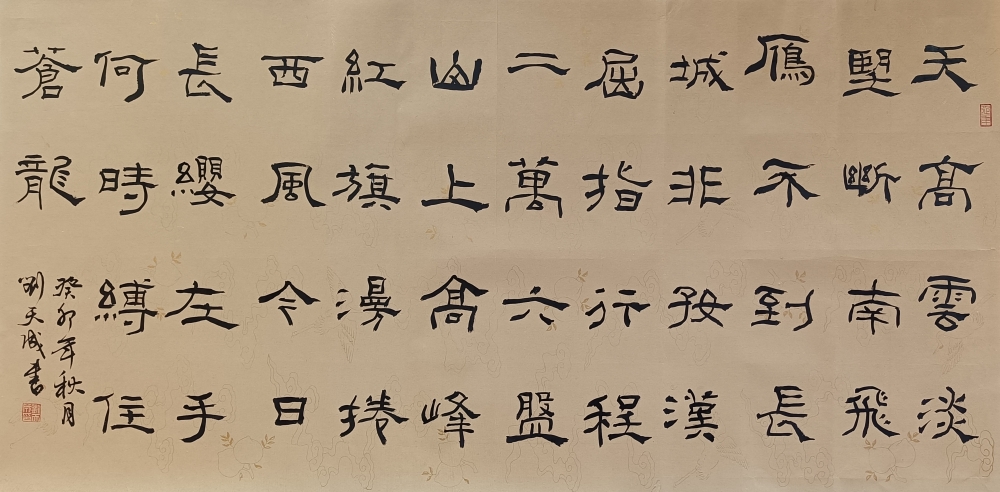 天高雲淡
望斷南飛
鴈不到長
城非好漢
屈指行程
二萬六盤
山上高峰
紅旗漫捲
西風今日
長纓左手
何時縛住
蒼龍
癸卯年秋月
劉天成書